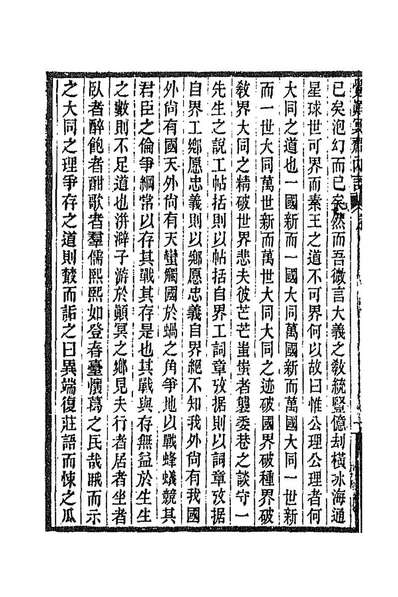 已矣泡幻而已矣然而吾微言大義之敎統豎億刦橫冰海通
星球世可界而素王之道不可界何以故曰惟公理公理者何
大同之道也一國新而一國大同萬國新而萬國大同一世新
而一世大同萬世新而萬世大同大同之迹破國界破種界破
敎界大同之精破世界悲夫彼芒芒蚩蚩者襲委巷之談守一
先生之說工帖括則以帖括自界工詞章攷据則以詞章攷据
自界工鄉愿忠義則以鄉愿忠義自界絕不知我外尙有我國
外尙有國天外尙有天蠻觸國於蝸之角爭地以戰蜂蟻競其
君臣之倫爭綱常以存其戰其存是也其戰與存無益於生生
之數則不足道也洴澼子游於顚冥之鄉見夫行者居者坐者
臥者醉飽者酣歌者羣儒熙熙如登春臺懷葛之民哉戚而示
之大同之理爭存之道則鼓而詬之曰異端復莊語而悚之瓜